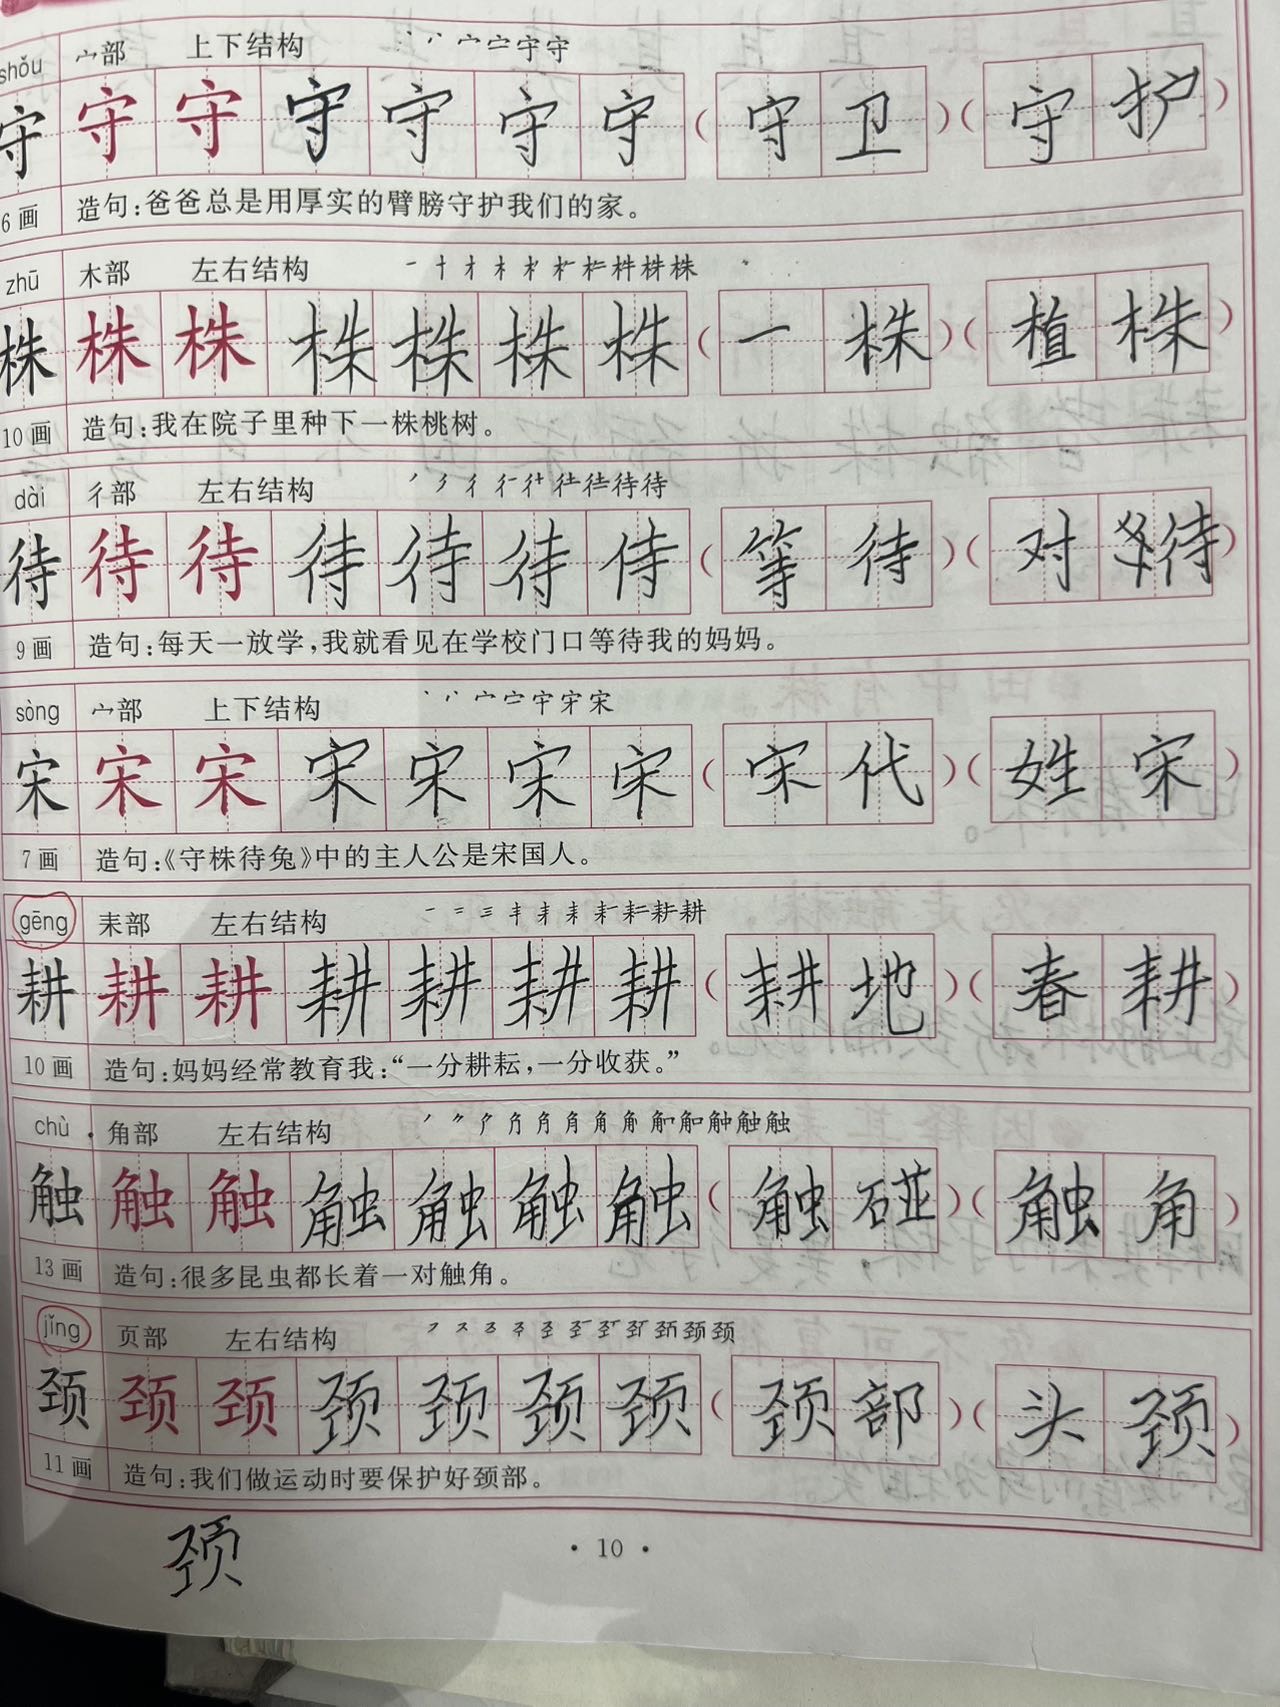 shǒu 宀部 上下结构 丶 丷 宀 宁 守
守 守 守 守 守 守 守 (守卫)(守护)
6画 造句:爸爸总是用厚实的臂膀守护我们的家。
zhū 木部 左右结构 一 十 才 木 株 株
株 株 株 株 株 株 株 (一株)(植株)
10画 造句:我在院子里种下一株桃树。
dài 彳部 左右结构 丿 彳 待 待
待 待 待 待 待 待 待 (等待)(对待)
9画 造句:每天一放学,我就看见在学校门口等待我的妈妈。
sòng 宀部 上下结构 丶 丷 宀 宋
宋 宋 宋 宋 宋 宋 宋 (宋代)(姓宋)
7画 造句:《守株待兔》中的主人公是宋国人。
gēng 耒部 左右结构 一 二 三 丰 耒 耕
耕 耕 耕 耕 耕 耕 耕 (耕地)(春耕)
10画 造句:妈妈经常教育我:“一分耕耘,一分收获。”
chù 角部 左右结构 角 触 触
触 触 触 触 触 触 触 (触碰)(触角)
13画 造句:很多昆虫都长着一对触角。
jǐng 页部 左右结构 颈 颈
颈 颈 颈 颈 颈 颈 颈 (颈部)(头颈)
11画 造句:我们做运动时要保护好颈部。
颈
• 10 •